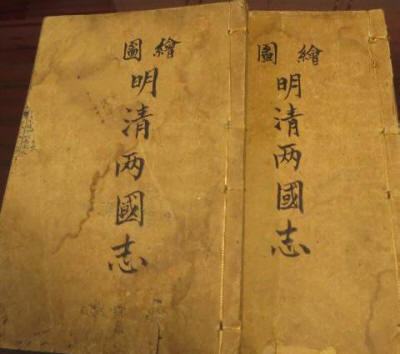 繪圖
明清两國志
繪圖
明清两國志